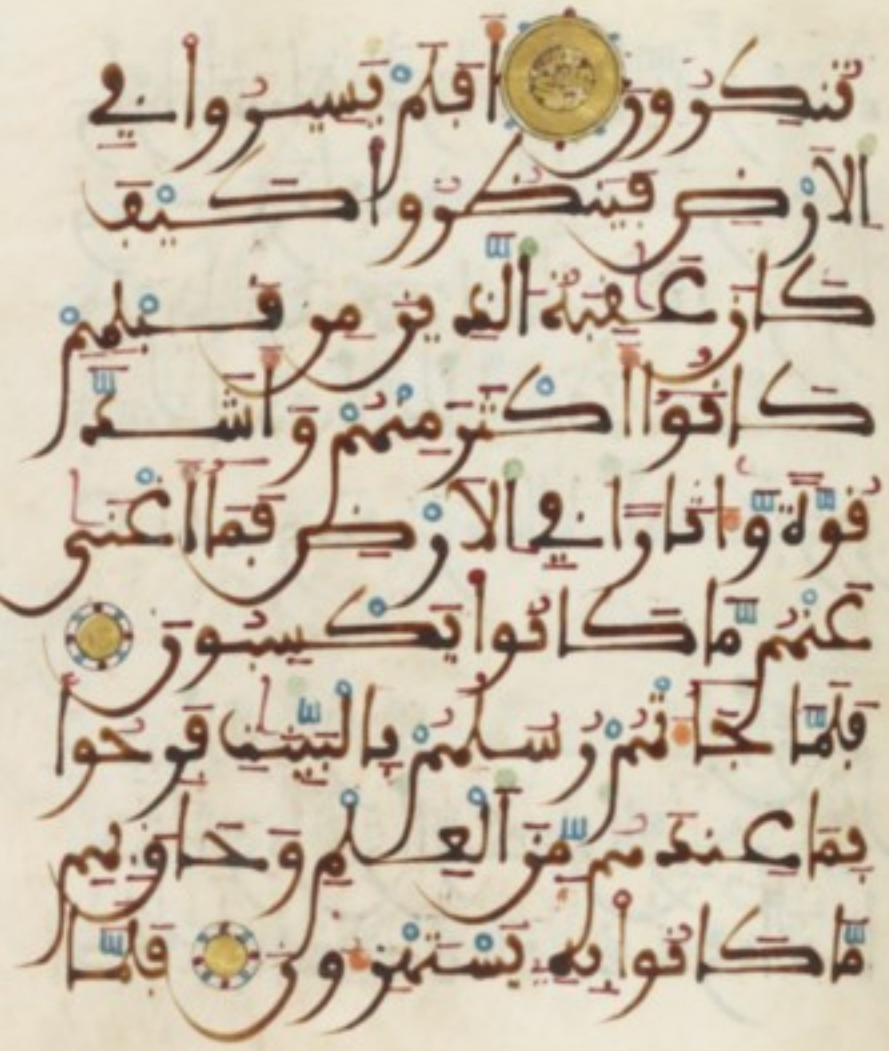 تُنكِرُونَ أَفَلَمْ يَسِيرُواْ فِي
الَارْضِ فَيَنظُرُواْ كَيْفَ
كَانَ عَٰقِبَةُ الَّذِينَ مِن قَبْلِهِمْ
كَانُواْ أَكْثَرَ مِنْهُمْ وَأَشَدَّ
قُوَّةً وَّءَاثَارًا فِي الَارْضِ فَمَا أَغْنَىٰ
عَنْهُم مَّا كَانُواْ يَكْسِبُونَ
فَلَمَّا جَاءَتْهُمْ رُسُلُهُم بِالْبَيِّنَٰتِ فَرِحُواْ
بِمَا عِندَهُم مِّنَ الْعِلْمِ وَحَاقَ بِهِم
مَّا كَانُواْ بِهِ يَسْتَهْزِءُونَ فَلَمَّا